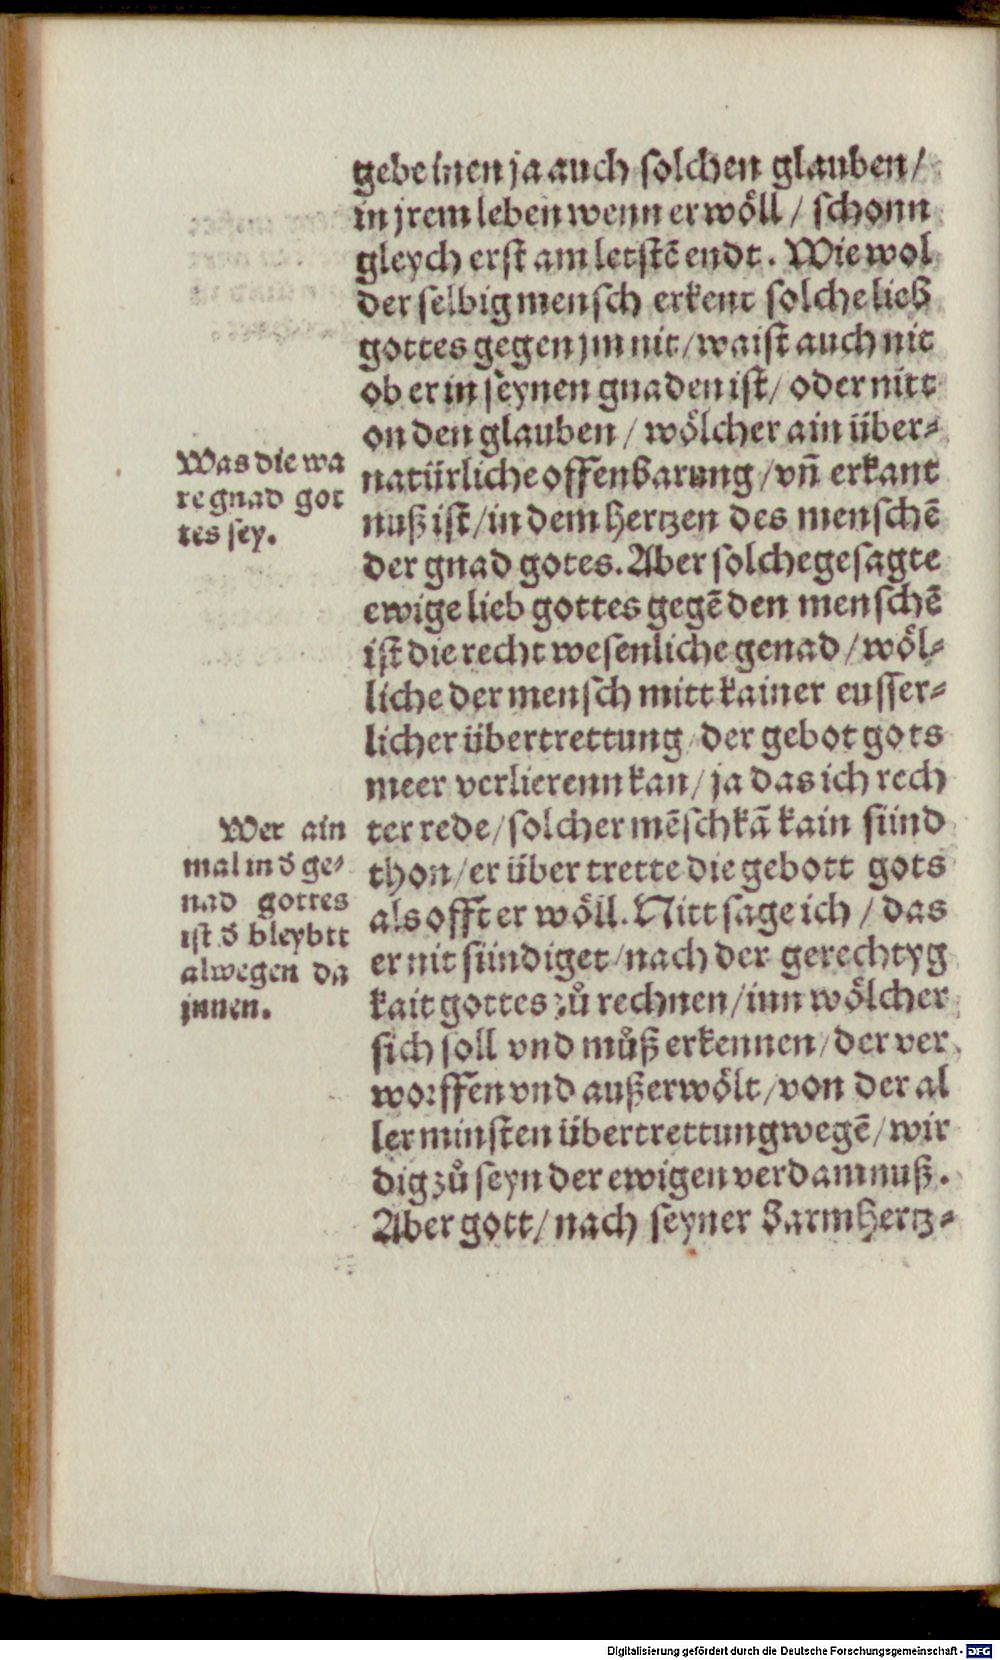 gebe inen ja auch solchen glauben /
in jrem leben wenn er wöll / schonn
gleych erst am letstē endt. Wie wol
der selbig mensch erkent solche lieb
gottes gegen jm nit / waist auch nit
ob er in seynen gnaden ist / oder nitt
on den glauben / wölcher ain über⸗
natürliche offenbarung / vñ erkant
nuß ist / in dem hertzen des menschē
der gnad gotes. Aber solche gesagte
ewige lieb gottes gegē den menschē
ist die recht wesenliche genad / wöl⸗
liche der mensch mitt kainer eusser⸗
licher übertrettung / der gebot gots
meer verlierenn kan / ja das ich rech
ter rede / solcher mēsch kā kain sünd
thon / er über trette die gebott gots
als offt er wöll. Nitt sage ich / das
er nit sündiget / nach der gerechtyg
kait gottes zů rechnen / inn wölcher
sich soll vnd můß erkennen / der ver
worffen vnd außerwölt / von der al
ler minsten übertrettung wegē / wir
dig zů seyn der ewigen verdamnuß.
Aber gott / nach seyner barmhertz⸗
Was die wa
re gnad got
tes sey.
Wer ain
mal in d̄ ge⸗
nad gottes
ist d̄ bleybtt
alwegen da
jnnen.
Digitalisierung gefördert durch die Deutsche Forschungsgemeinschaft - DFG